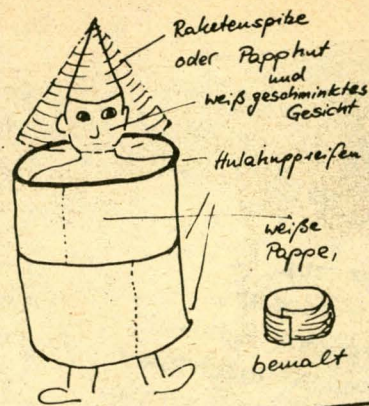 Raketenspitze
oder Papphut
und
weiß geschminktes
Gesicht
Hulahuppreifen
weiße
Pappe,
bemalt